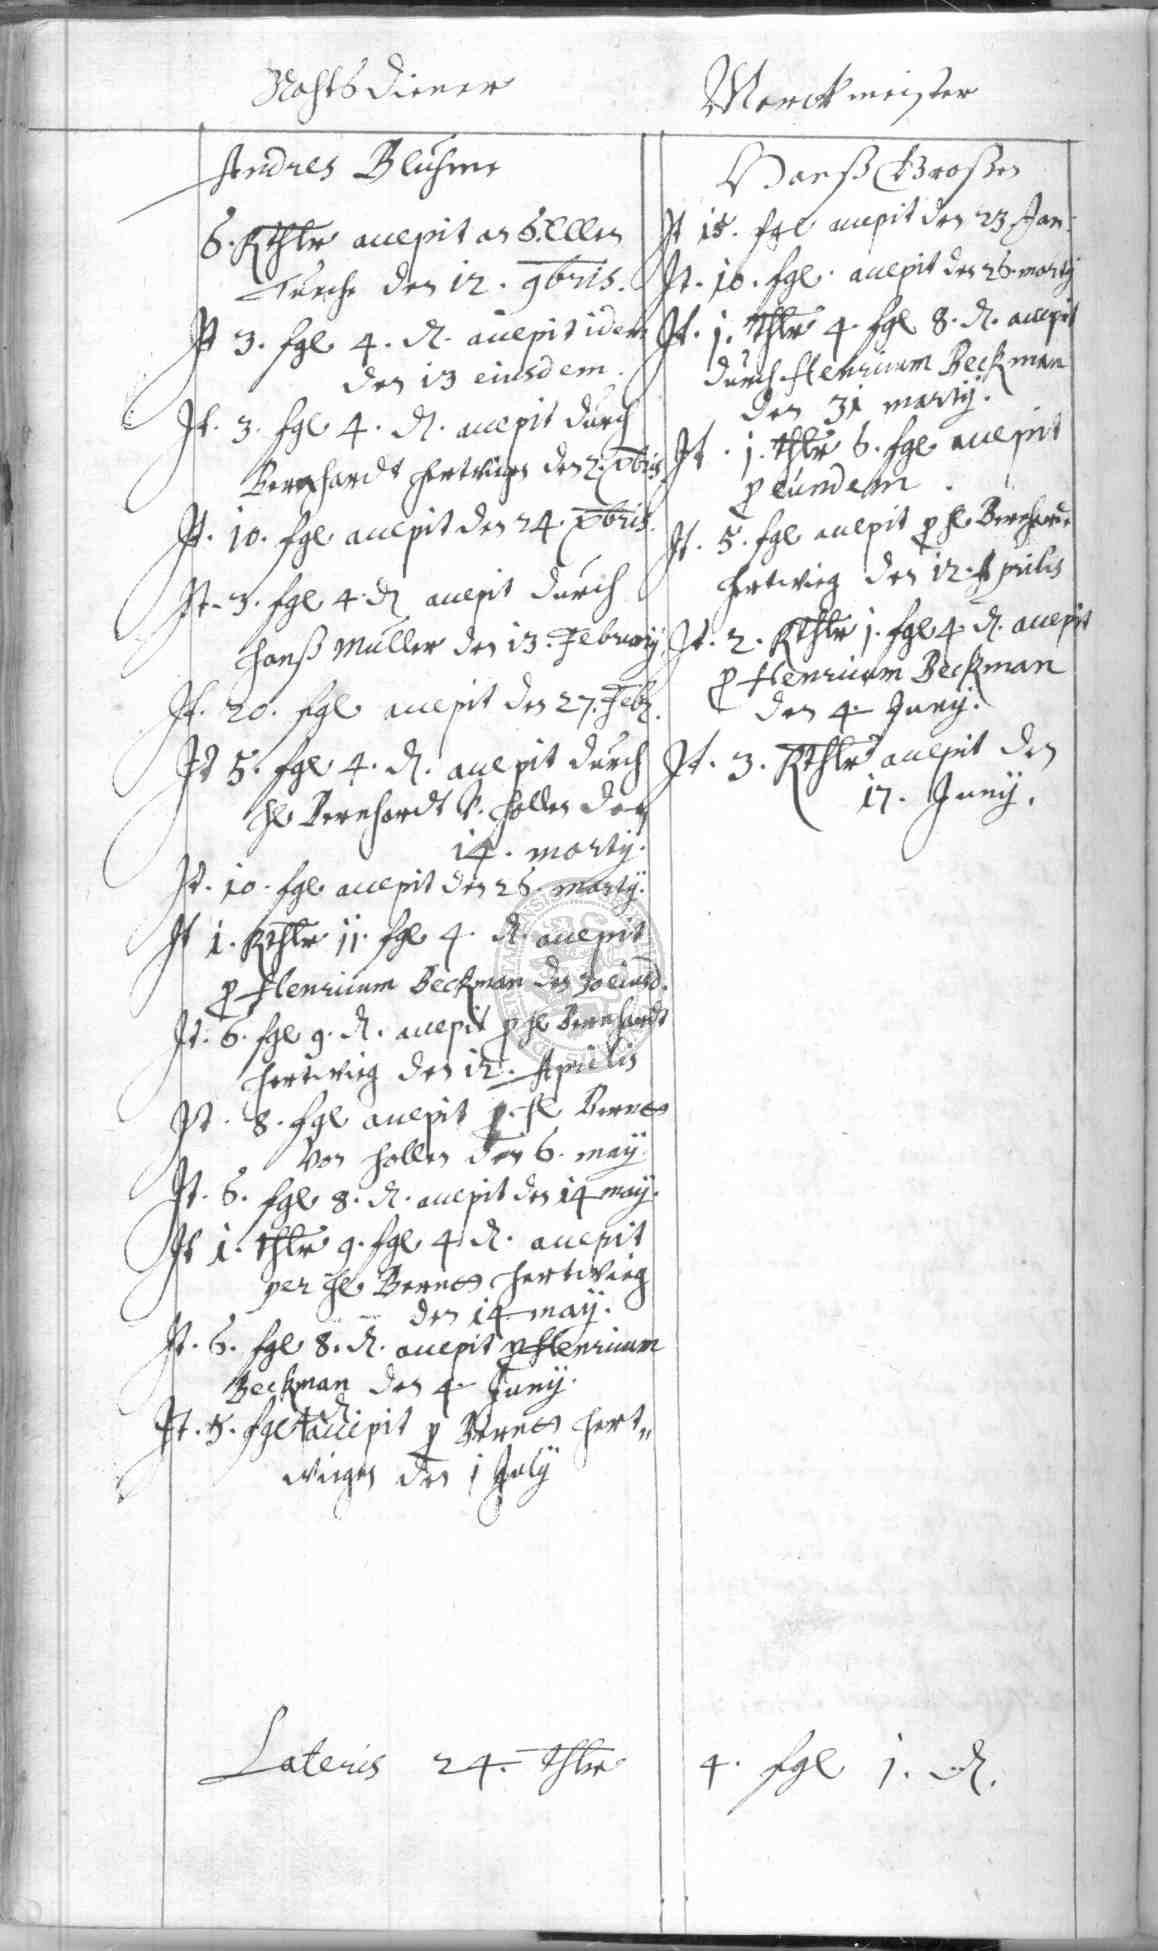 Rahts diener
Andres Bluhme
6. Rthlr accepit an 6. Ellen
Tuche den 12. 9bris.
It 3. fgl 4. d. accepit idem
den 13 eiusdem.
It. 3. fgl 4. d. accepit durch
Bernhardt hertwigs den 2. Xbris
It. 10. fgl accepit den 24. Xbris.
It. 3. fgl 4 d accepit durch
Hanß Müller den 13. February
It. 20. fgl accepit den 27. Feb.
It 5. fgl 4. d. accepit durch
H Bernhardt V. Hollen den
14. marty.
It. 10. fgl accepit den 26. marty.
It 1. Rthlr 11. fgl 4. d. accepit
p Henricum Beckman den 30 eiusd.
It. 6. fgl 9. d. accepit p H Bernhardt
hertwieg den 12. Aprilis
It. 8. fgl accepit p. H Berndt
Von Hollen den 6. may.
It. 6. fgl 8. d. accepit den 14 may.
It 1. thlr 9. fgl 4 d. accepit
per H Berndt hertwieg
den 14 may.
It. 6. fgl 8. d. accepit p Henricum
Beckman den 4 Juny.
It. 5. fgl 4 d accipit p Berndt hert„
wiegen den 1 July
Marckmeister
Hanß Großen
It 15. fgl accepit den 23 Jan:
It. 10. fgl. accepit den 26. marty
It. 1. thlr 4. fgl 8. d. accepit
durch Henricum Beckman
den 31 marty.
It. 1. thlr 6. fgl accepit
p eundem.
It. 5. fgl accepit p H Bernhardt
hertwieg den 12. Aprilis
It. 2. Rthlr 1. fgl 4 d. accepit
p Henricum Beckman
den 4. Juny.
It. 3. Rthlr accepit den
17. Juny.
Lateris 24. thlr 4. fgl 1. d.